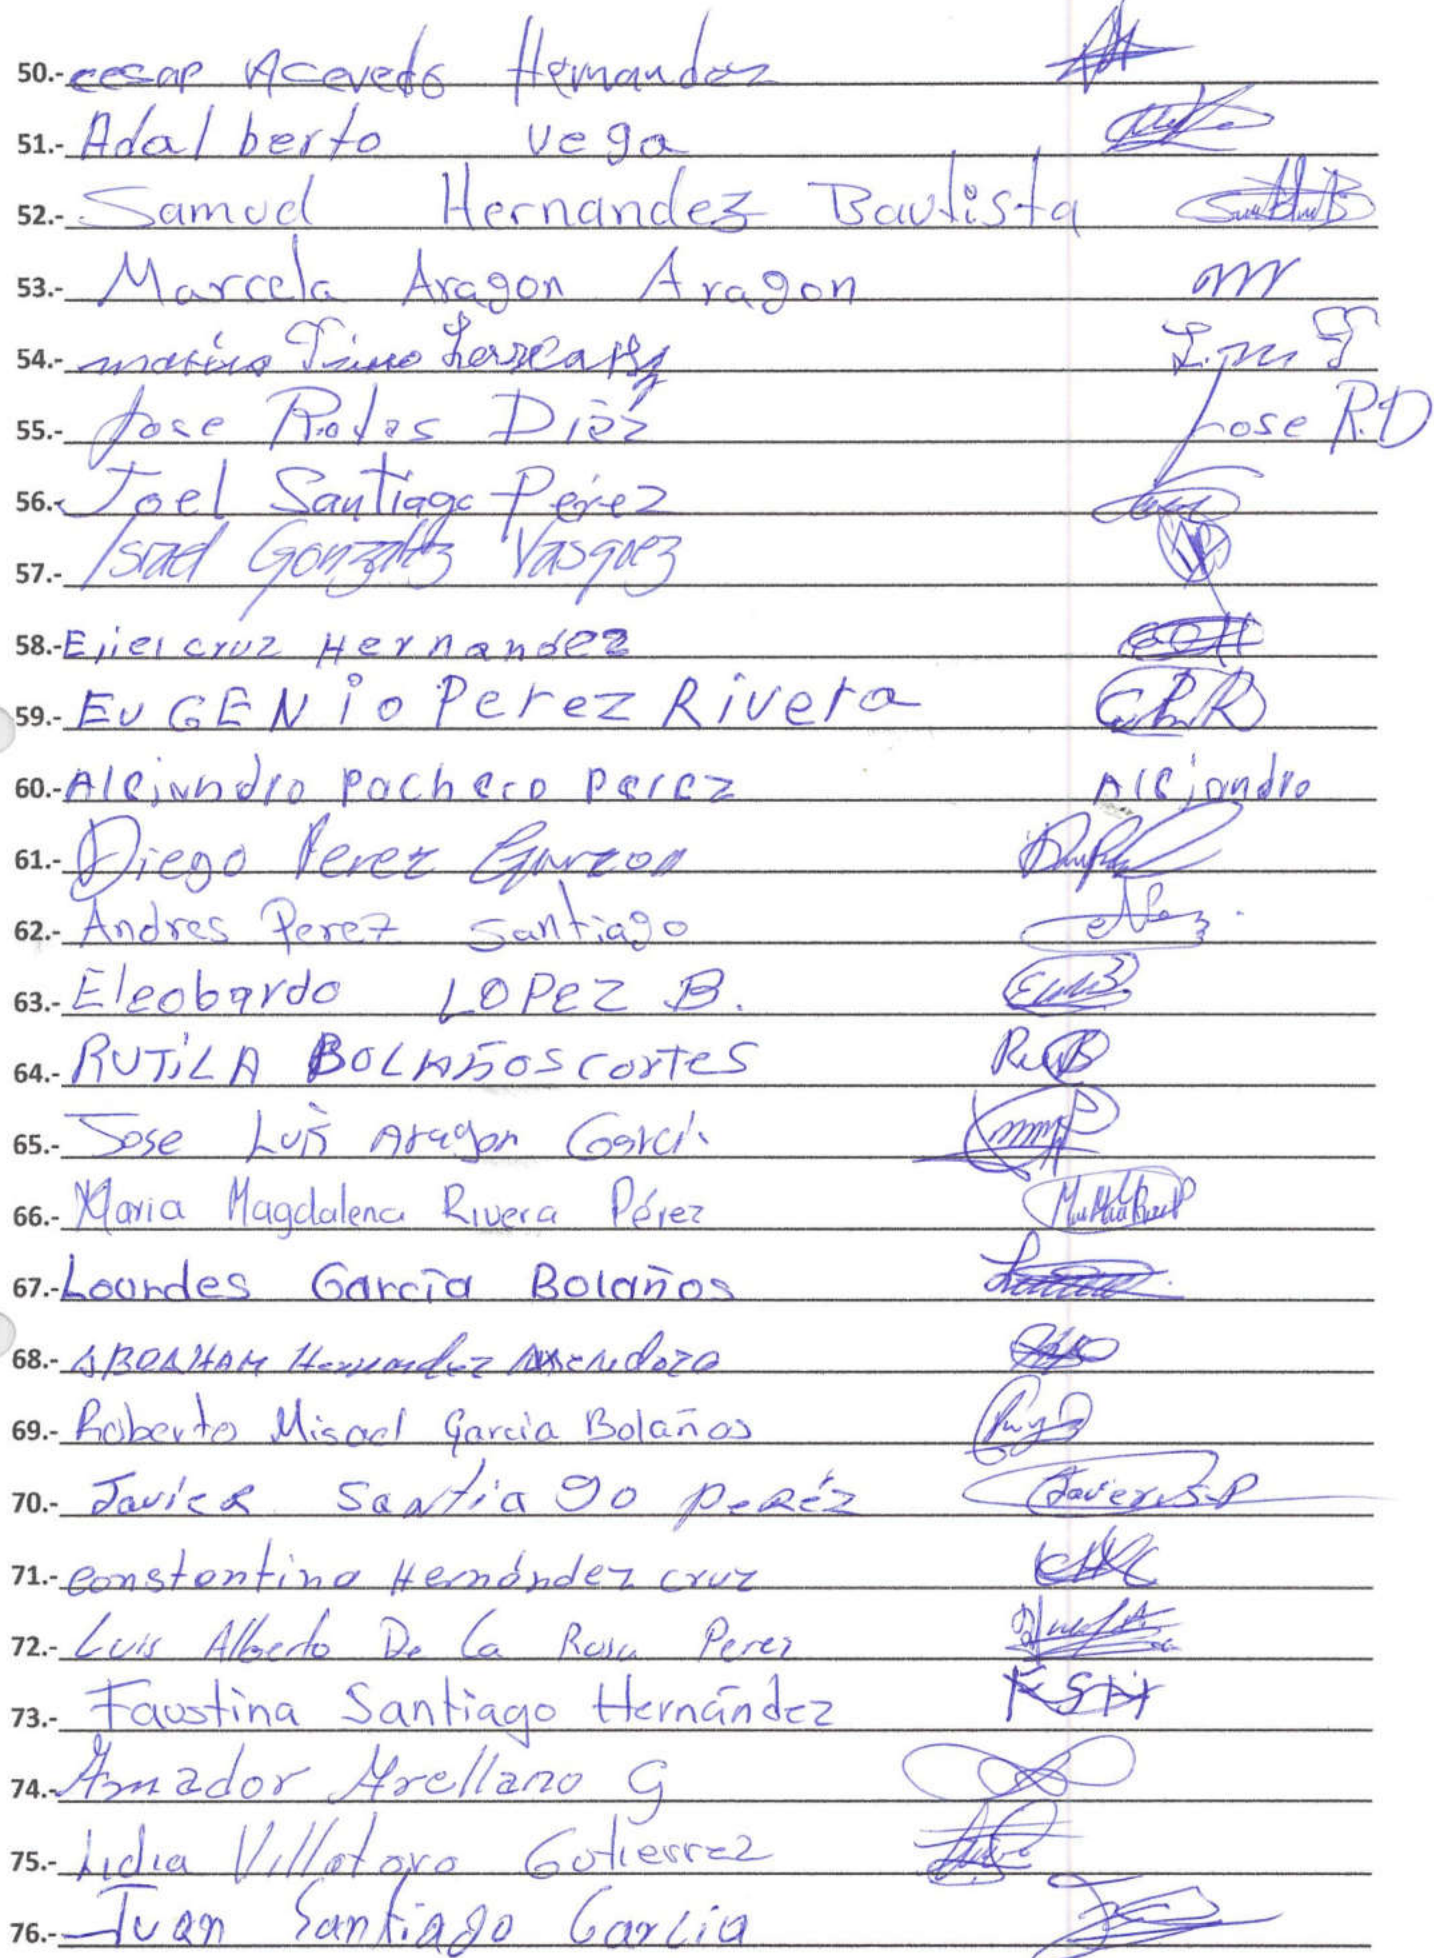 50.- cesar Acevedo Hernandez
51.- Adalberto Vega
52.- Samuel Hernandez Bautista
53.- Marcela Aragon Aragon
54.- L.M
55.- Jose Rojas Diéz Jose R.D
56.- Joel Santiago Pérez
57.- Israel González Vasquez
58.- Eliel cruz Hernandez
59.- EUGENio Perez Rivera
60.- Alejandro Pacheco Perez Alejandro
61.- Diego Perez Garzon
62.- Andres Perez Santiago
63.- Eleobardo LOPEZ B.
64.- RUTiLA BOLAÑOS cortes
65.- Jose Luis Aragon Garci
66.- Maria Magdalena Rivera Pérez
67.- Lourdes García Bolaños
68.- ABRAHAM Hernandez Mendoza
69.- Roberto Misael Garcia Bolaños
70.- Javier Santiago peréz Javier S.P
71.- constantino Hernández cruz
72.- Luis Alberto De La Rosa Perez
73.- Faustina Santiago Hernández FSH
74.- Amador Arellano G
75.- Lidia Villatoro Gutierrez
76.- Juan Santiago Garcia